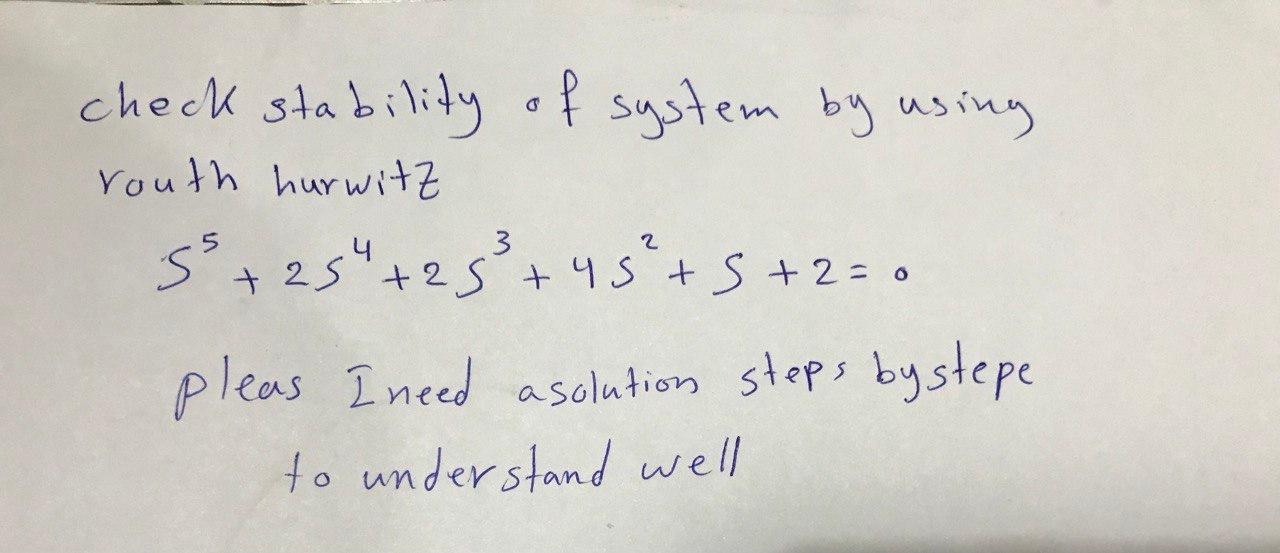 check stability of system by using
routh hurwitz
S⁵ + 2S⁴ + 2S³ + 4S² + S + 2 = 0
pleas I need a solution steps by stepe
to understand well